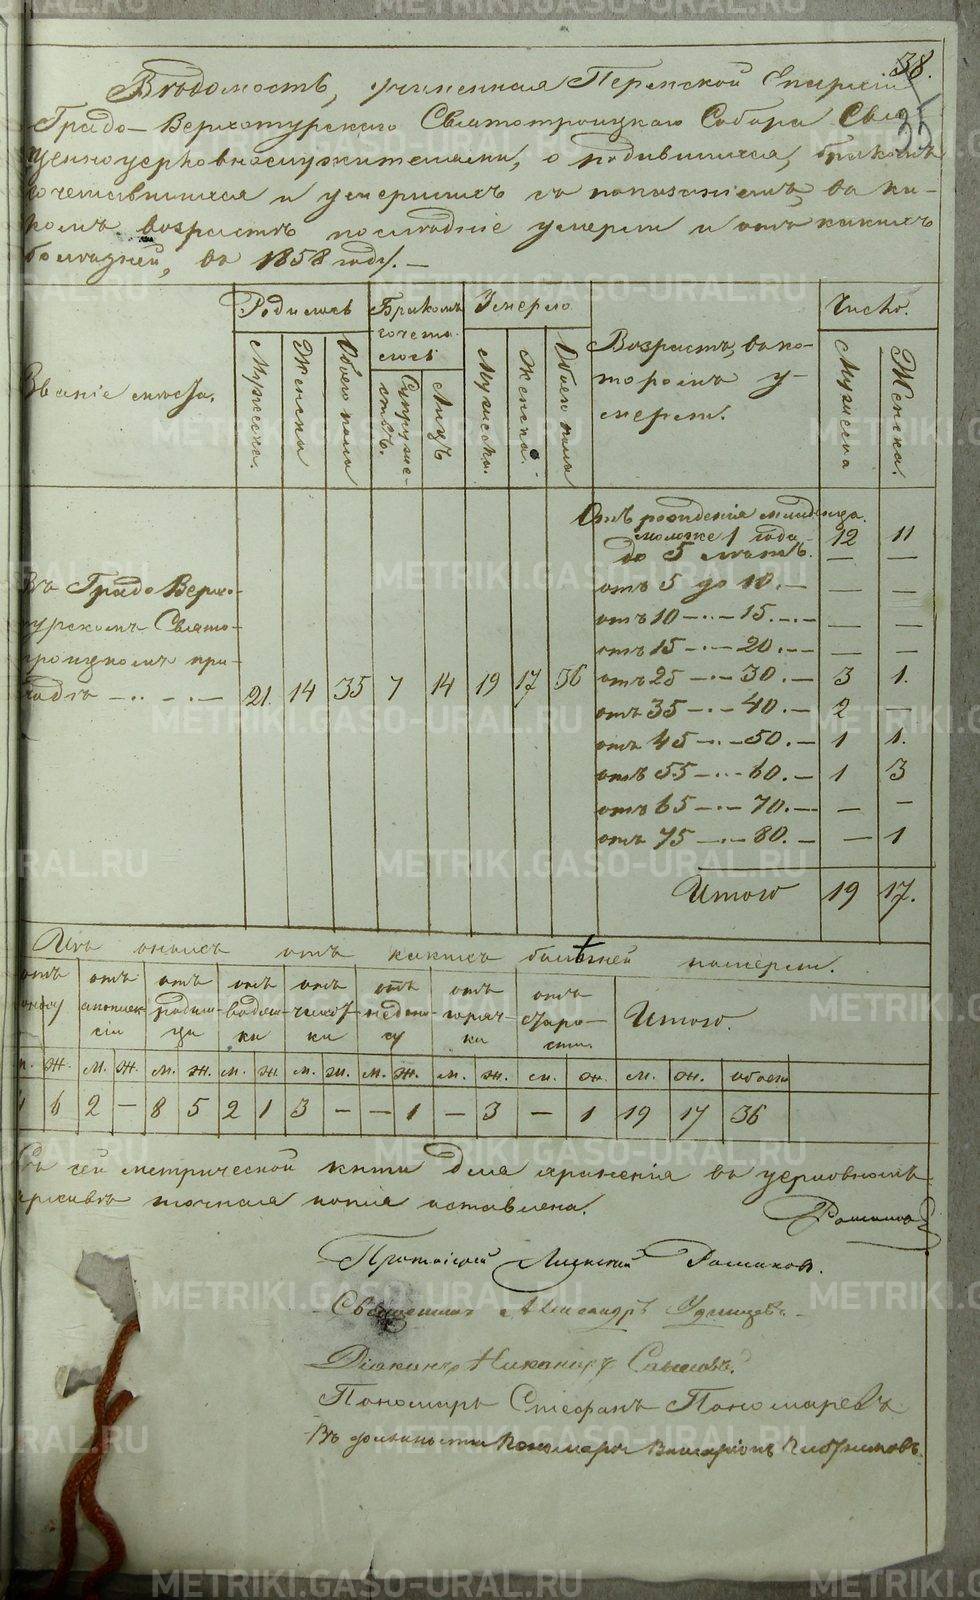 38.
35
Вѣдомость, учиненная Пермской Епархіи
Градо-Верхотурскаго Святотроицкаго Собора Свя
щенноцерковнослужителями, о родившихся, бракомъ
сочетавшихся и умершихъ съ показаніемъ, въ ка-
комъ возрастѣ послѣдніе умерли и отъ какихъ
болѣзней, въ 1858 году. —
Званіе мѣста.
Родилось
Мужеска.
Женска
Обоего пола
Бракомъ сочета-лось
Супруже-ствъ.
Лицъ
Умерло
Мужеска.
Женска.
Обоего пола
Возрастъ, въ ко-
торомъ у-
мерли.
Число.
Мужеска
Женска.
Въ Градо Верхо-
турскомъ Свято-
троицкомъ при-
ходѣ
21. 14 35 7 14 19 17 36
Отъ рожденія младенца.
моложе 1 года 12 11
до 5 лѣтъ. — —
отъ 5 до 10. — — —
отъ 10 — 15. — — —
отъ 15 — 20. — — —
отъ 25 — 30. — 3 1.
отъ 35 — 40. — 2 —
отъ 45 — 50. — 1 1.
отъ 55 — 60. — 1 3
отъ 65 — 70. — — —
отъ 75 — 80. — — 1
Итого 19 17.
Изъ оныхъ отъ какихъ болѣзней померли.
отъ
отъ апоплек-сіи
отъ родим-ца
отъ водян-ки
отъ чахот-ки
отъ
отъ горяч-ки
отъ старо-сти.
Итого.
м. ж. м. ж. м. ж. м. ж. м. ж. м. ж. м. ж. м. ж. м. ж. обоего
6 2 — 8 5 2 1 3 — — 1 — 3 — 1 19 17 36
Съ сей метрической книги для храненія въ церковномъ
архивѣ точная копія оставлена.
Протоіерей
Священникъ Александръ Удинцевъ
Діаконъ Никаноръ
Пономарь Стефанъ Пономаревъ
Въ должности Пономаря
METRIKI.GASO-URAL.RU